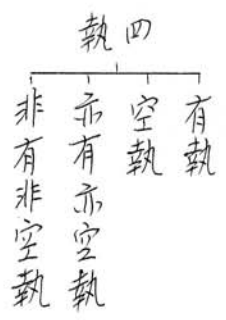 四執
有執
空執
亦有亦空執
非有非空執